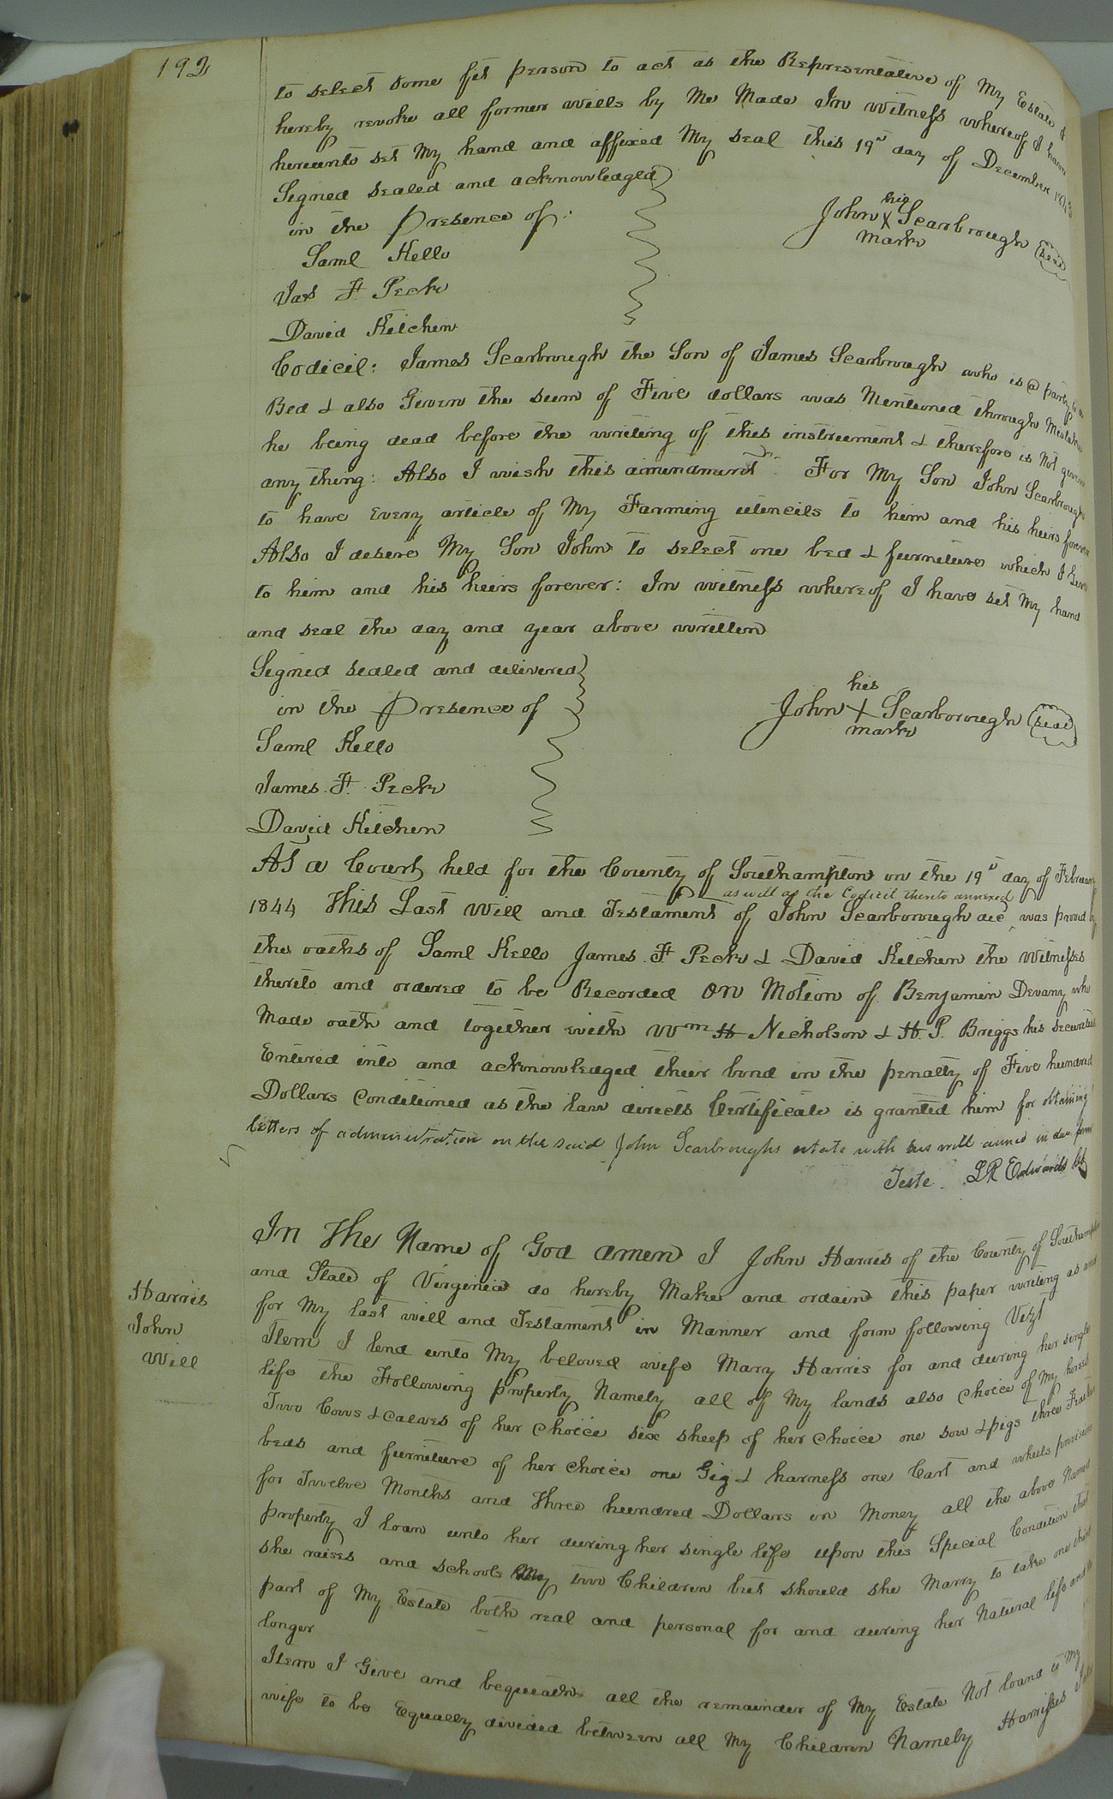 192
to select some fit person to act as the Representative of My Estate I
hereby revoke all former wills by Me Made In Witness whereof I have
hereunto set My hand and affixed My seal this 19th day of December
Signed sealed and acknowledged
in the Presence of:
John his X mark Scarbrough (seal)
Saml Kello
Jas F Peck
David Kitchen
Codicil: James Scarbrough the Son of James Scarbrough who is a party
Bed & also Given the sum of Five dollars was Mentioned through Mistake
he being dead before the writing of this instrument & therefore is Not given
any thing: Also I wish this amendment For My Son John Scarbrough
to have Every article of My Farming utencils to him and his heirs forever
Also I desire My Son John to select one bed & furniture which I Give
to him and his heirs forever: In witness whereof I have set My hand
and seal the day and year above written
Signed sealed and delivered
in the Presence of
John his X mark Scarborough (seal)
Saml Kello
James F. Peck
David Kitchen
At a Court held for the County of Southampton on the 19th day of February
as will as the Codicil thereto annexed
1844 This Last Will and Testament of John Scarborough dec was proved by
the oaths of Saml Kello James F Peck & David Kitchen the Witnesses
thereto and ordered to be Recorded ON Motion of Benjamin Devany who
Made oath and together with Wm H Nicholson & H. P. Briggs his securities
Entered into and acknowledged their bond in the penalty of Five hundred
Dollars Conditioned as the law directs Certificate is granted him for obtaining
letters of administration on the said John Scarbroughs estate with his will annexd in due form
Teste L R Edwards
Harris
John
Will
In The Name of God amen I John Harris of the County of Southampton
and State of Virginia do hereby Make and ordain this paper writing as and
for My last will and Testament in Manner and form following Vizt
Item I lend unto My beloved wife Mary Harris for and during her single
life the Following property Namely all of My lands also choice of My horses
Two Cows & calves of her choice six sheep of her choice one sow & pigs three Feather
beds and furniture of her choice one Gig & harness one Cart and wheels provisions
for Twelve Months and Three hundred Dollars in Money all the above Named
property I loan unto her during her single life upon this Special Condition that
she raises and schools My two Children but should she Marry to take one third
part of My Estate both real and personal for and during her Natural life and no
longer
Item I Give and bequeath all the remainder of My Estate Not loand to My
wife to be Equally divided between all My Children Namely